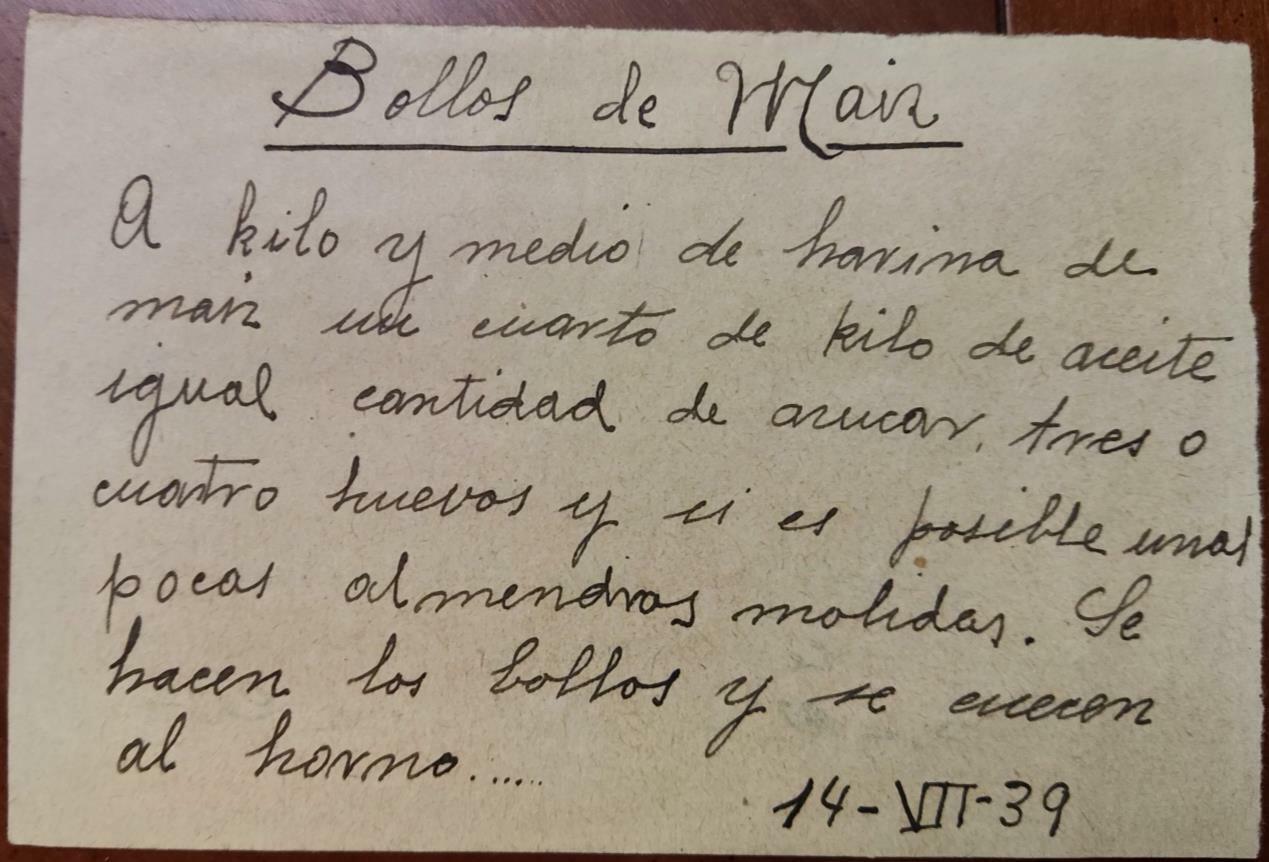 Bollos de Maiz
A kilo y medio de harina de
maiz un cuarto de kilo de aceite
igual cantidad de azucar, tres o
cuatro huevos y si es posible unas
pocas almendras molidas. Se
hacen los bollos y se cuecen
al horno.....
14-VII-39